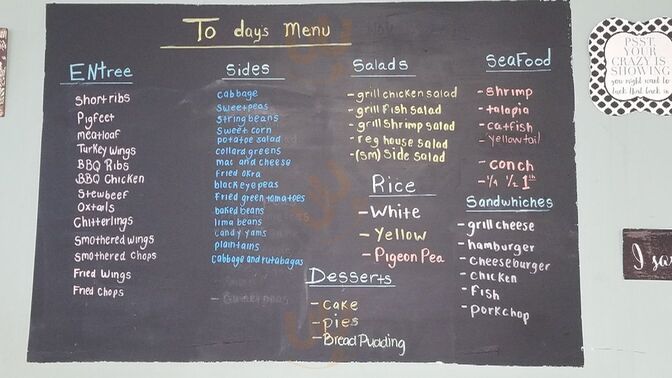 To day's Menu
ENtree
Short ribs
Pigfeet
meatloaf
Turkey Wings
BBQ Ribs
BBQ Chicken
Stewbeef
Oxtails
Chitterlings
Smothered wings
Smothered Chops
Fried Wings
Fried Chops
Sides
cabbage
Sweetpeas
Stringbeans
Sweet corn
potatoe salad
collard greens
mac and cheese
Fried okra
blackeyepeas
Fried green tomatoes
baked beans
lima beans
candy yams
plaintains
Cabbage and rutabagas
Salads
- grill chicken salad
- grill Fish salad
- grill Shrimp salad
- reg house salad
- (sm) Side salad
Rice
- White
- Yellow
- Pigeon Pea
Desserts
- cake
- pies
- Bread Pudding
Seafood
- shrimp
- talapia
- catfish
- yellowtail
- conch
- 1/4 1/2 1 lb
Sandwhiches
- grill cheese
- hamburger
- cheeseburger
- chicken
- Fish
- porkchop
PSST,
YOUR
CRAZY IS
SHOWING
you might want to
tuck that back in